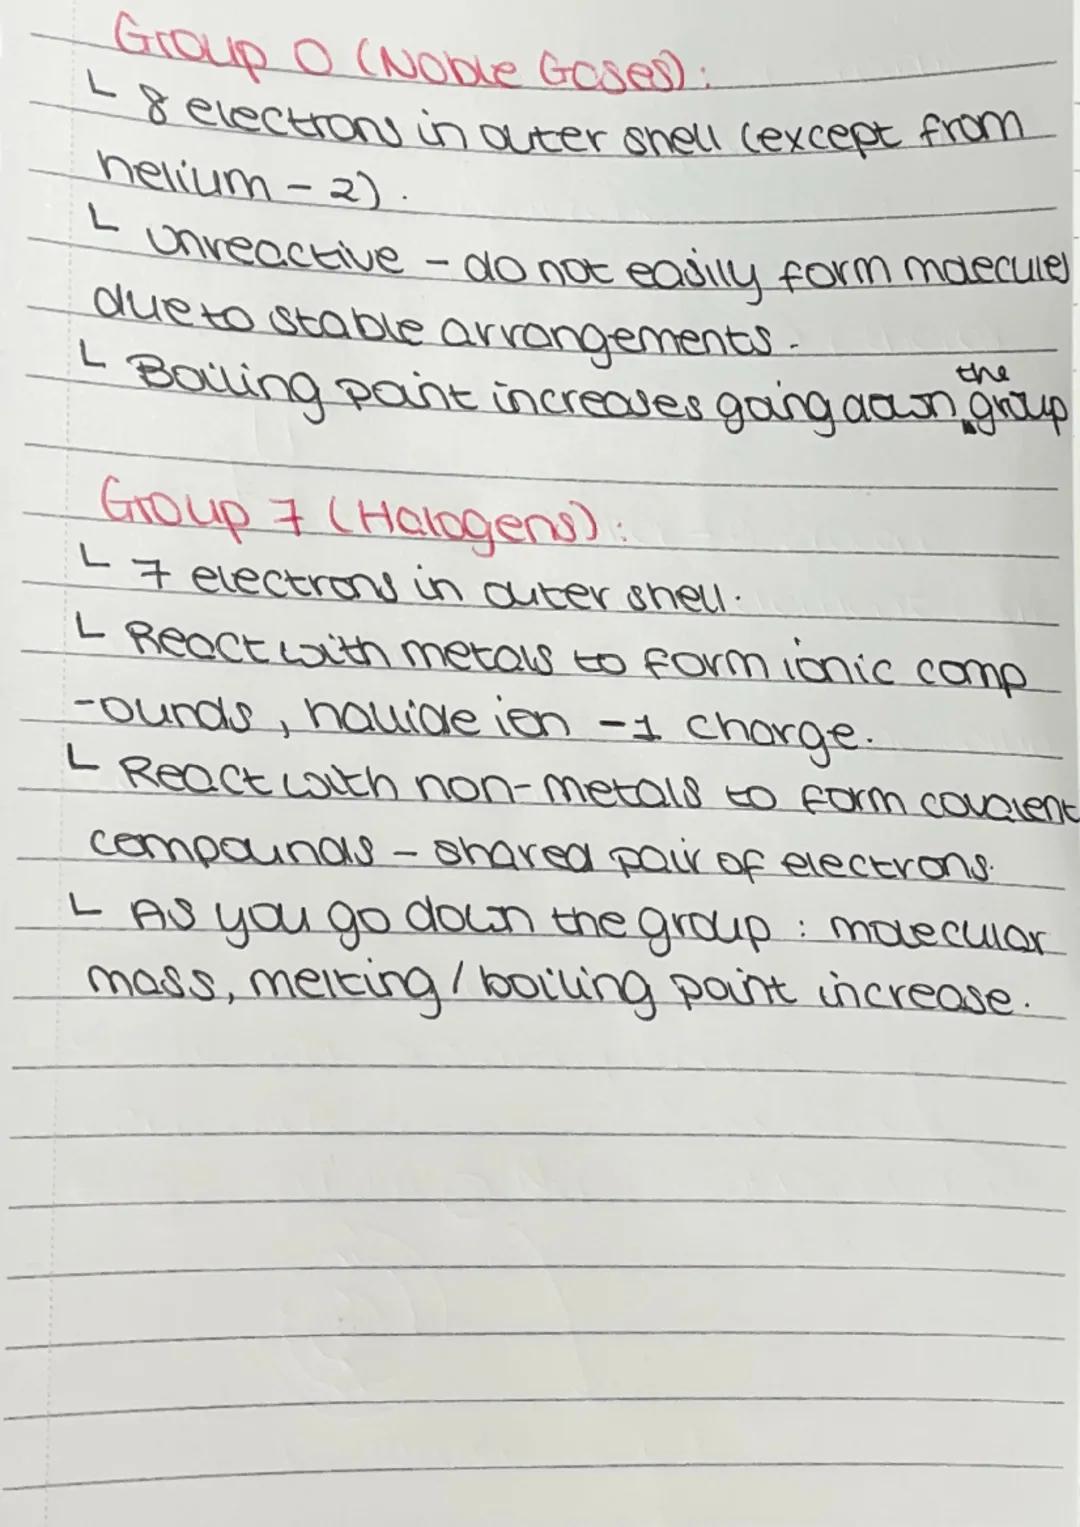 Group 0 (Noble Gases):
└ 8 electrons in outer shell (except from
helium - 2).
└ unreactive - do not easily form molecules
due to stable arrangements.
└ Boiling point increases going down the group
Group 7 (Halogens):
└ 7 electrons in outer shell.
└ React with metals to form ionic comp
-ounds, halide ion -1 charge.
└ React with non-metals to form covalent
compounds - shared pair of electrons.
└ As you go down the group : molecular
mass, melting / boiling point increase.